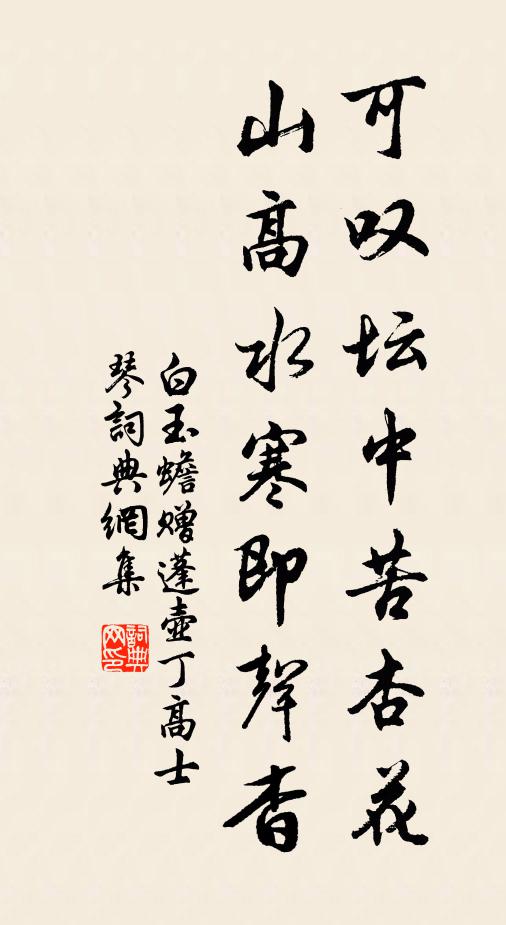 可叹坛中苦杏花
山高水寒即聲杳
白玉蟾赠蓬壺丁高士
琴詞典網集
詞典
网印